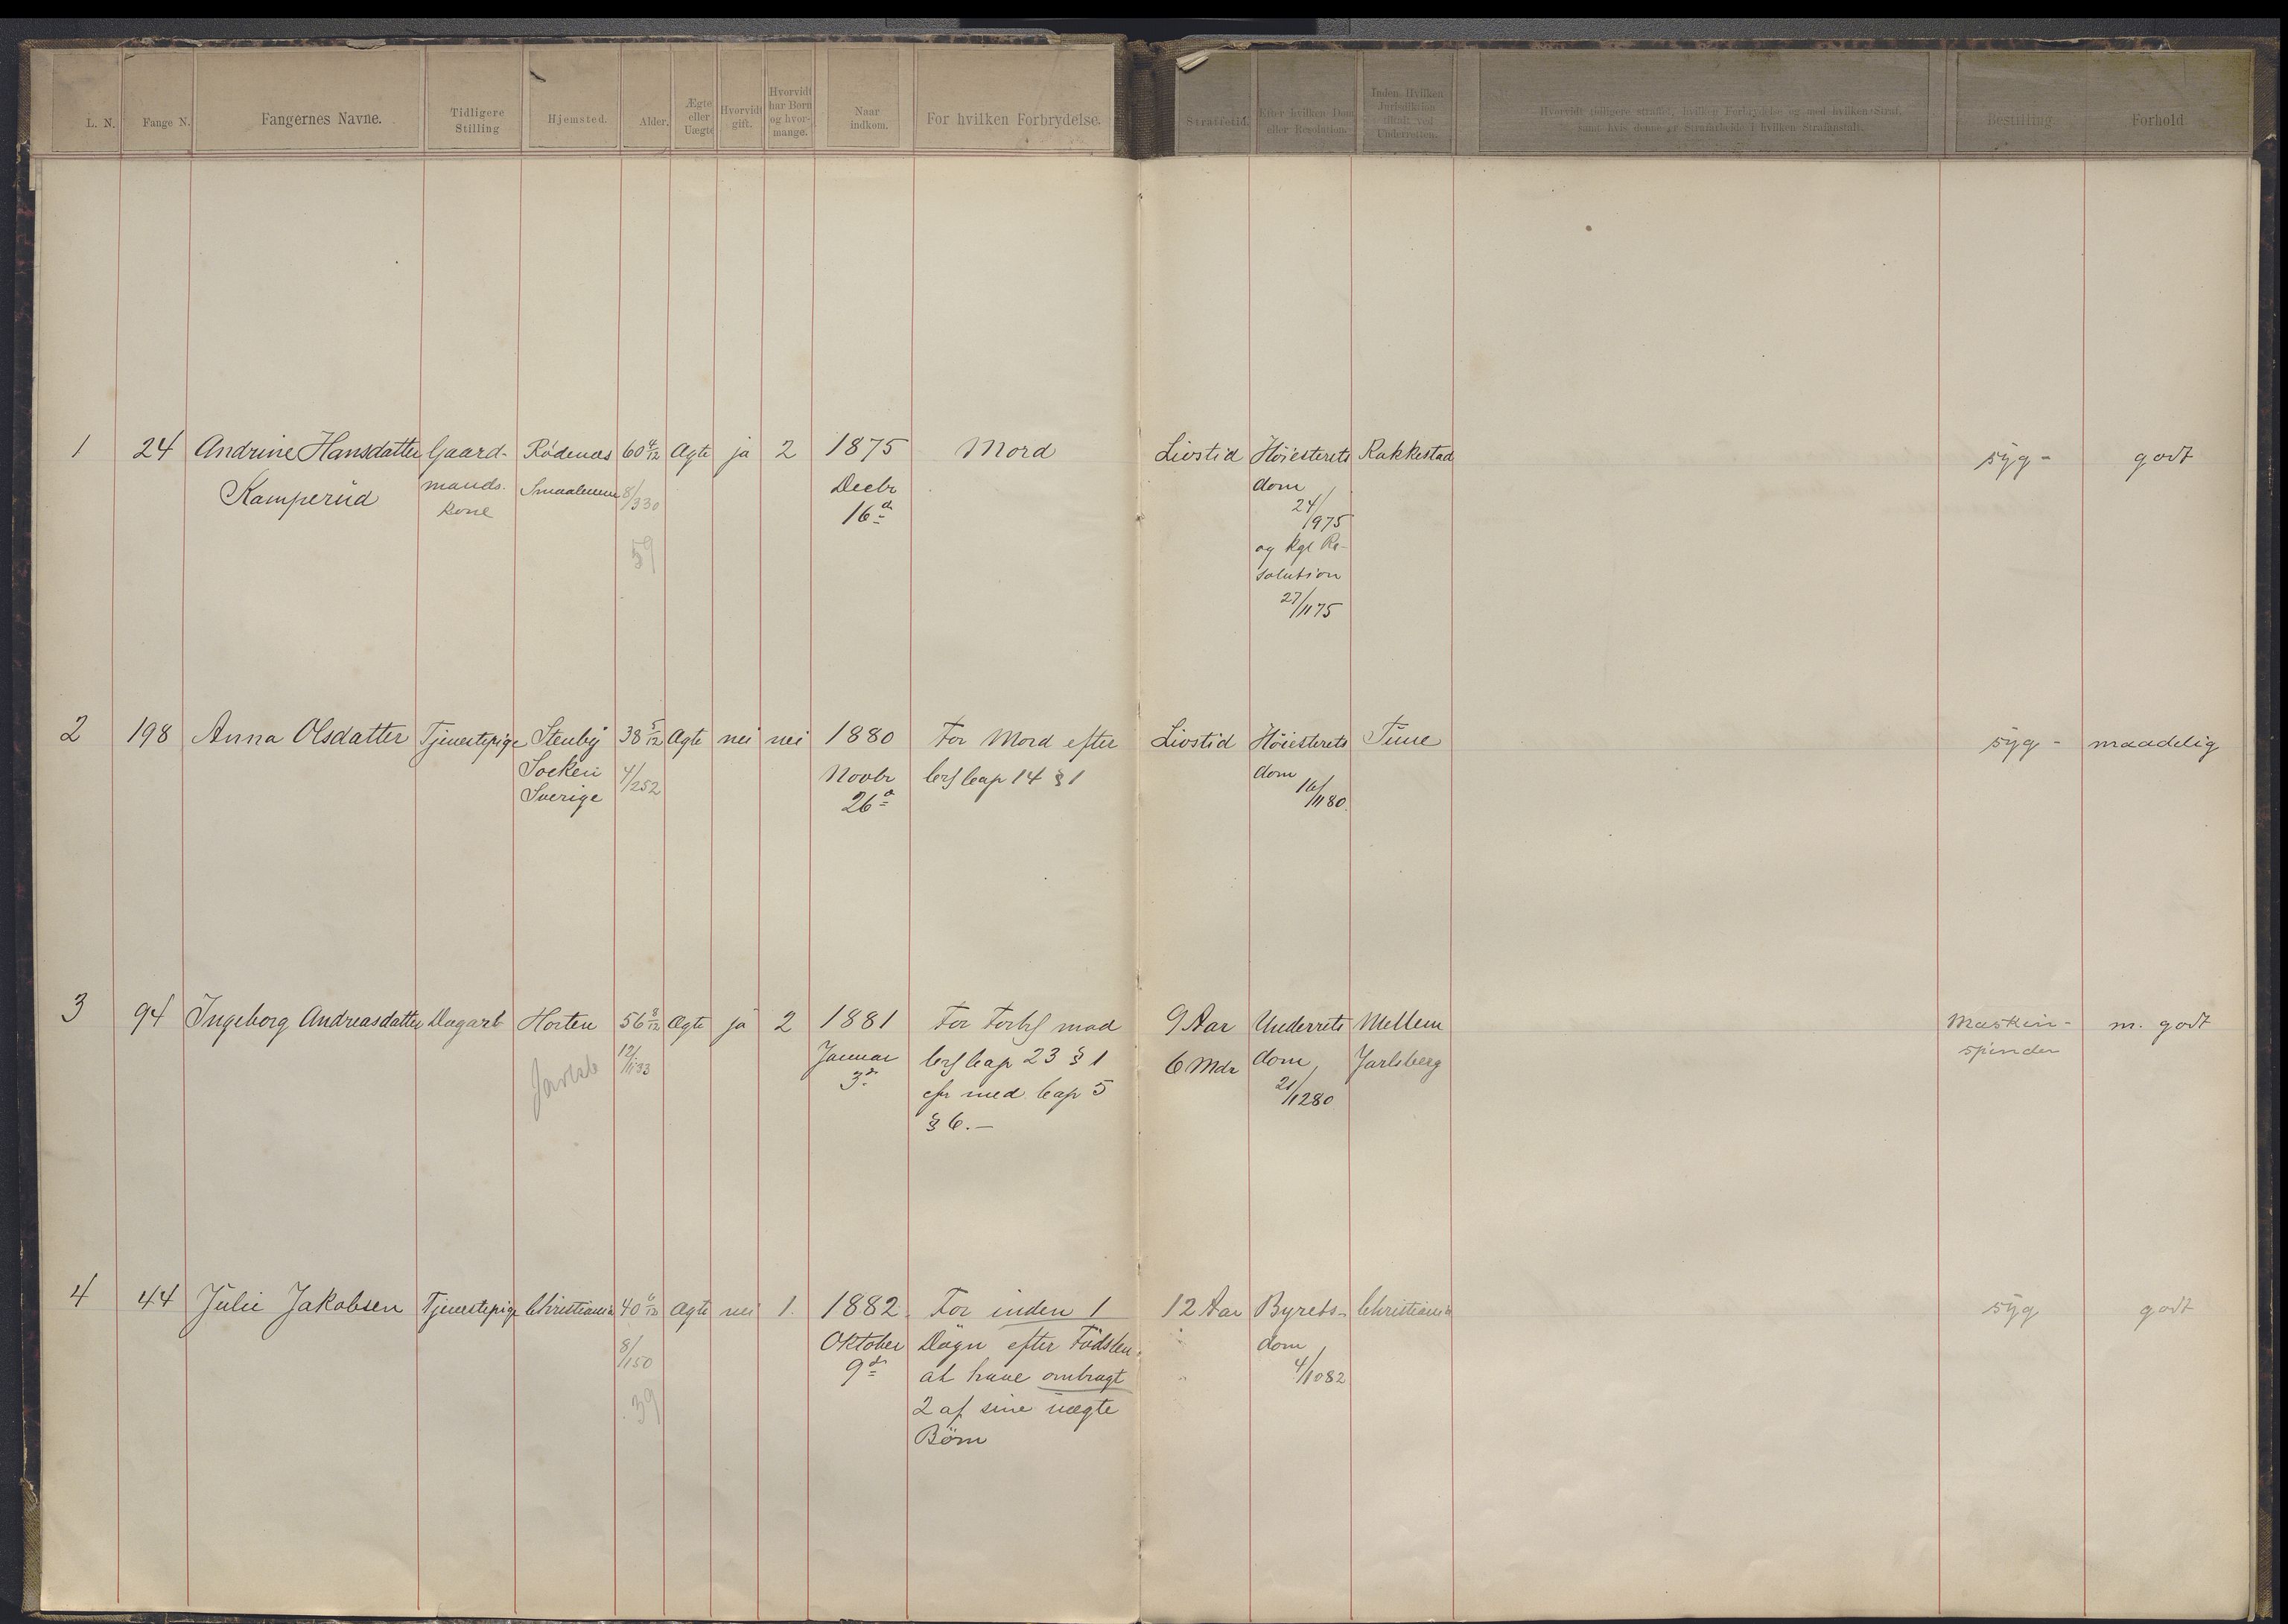 L. N.
Fange N.
Fangernes Navne.
Tidligere
Stilling
Hjemsted.
Alder.
Ægte
eller
Uægte
Hvorvidt
gift.
Hvorvidt
har Børn
og hvor-
mange.
Naar
indkom.
For hvilken Forbrydelse.
Straffetid.
Efter hvilken Dom
eller Resolution.
Inden Hvilken
Jurisdiktion
tiltalt ved
Underretten.
Hvorvidt tidligere straffet, hvilken Forbrydelse og med hvilken Straf,
samt hvis denne er Strafarbeide i hvilken Strafanstalt.
Bestilling
Forhold
1
24
Andrine Hansdatter
Kamperud
Gaard-
mands-
kone
Rødenes
Smaalenene
60 4/12
8/3 30
59
Ægte
ja
2
1875
Decbr
16d
Mord
Livstid
Høiesterets
dom
24/9 75
og kgl Re-
solution
27/11 75
Rakkestad
syg -
godt
2
198
Anna Olsdatter
Tjenestepige
Stenby
Socken
Sverige
38 5/12
4/2 52
Ægte
nei
nei
1880
Novbr
26d
For Mord efter
Crf Cap 14 § 1
Livstid
Høiesterets
dom
16/11 80.
Tune
syg -
maadelig
3
94
Ingeborg Andreasdatter
Dagarb
Horten
Jarlsb
56 8/12
12/1 33
Ægte
ja
2
1881
Januar
3d
For Forbr mod
Crf Cap 23 § 1
cfr med Cap 5
§ 6. -
9 Aar
6 Mdr
Underrets
dom
21/12 80
Mellem
Jarlsberg
Maskin-
spinder
m. godt
4
44
Julie Jakobsen
Tjenestepige
Christiania
8/1 50
39
Ægte
nei
1.
1882
Oktober
9d
For inden 1
Døgn efter Fødslen
at have ombragt
2 af sine uægte
Børn
12 Aar
Byrets-
dom
4/10 82
Christiania
syg
godt